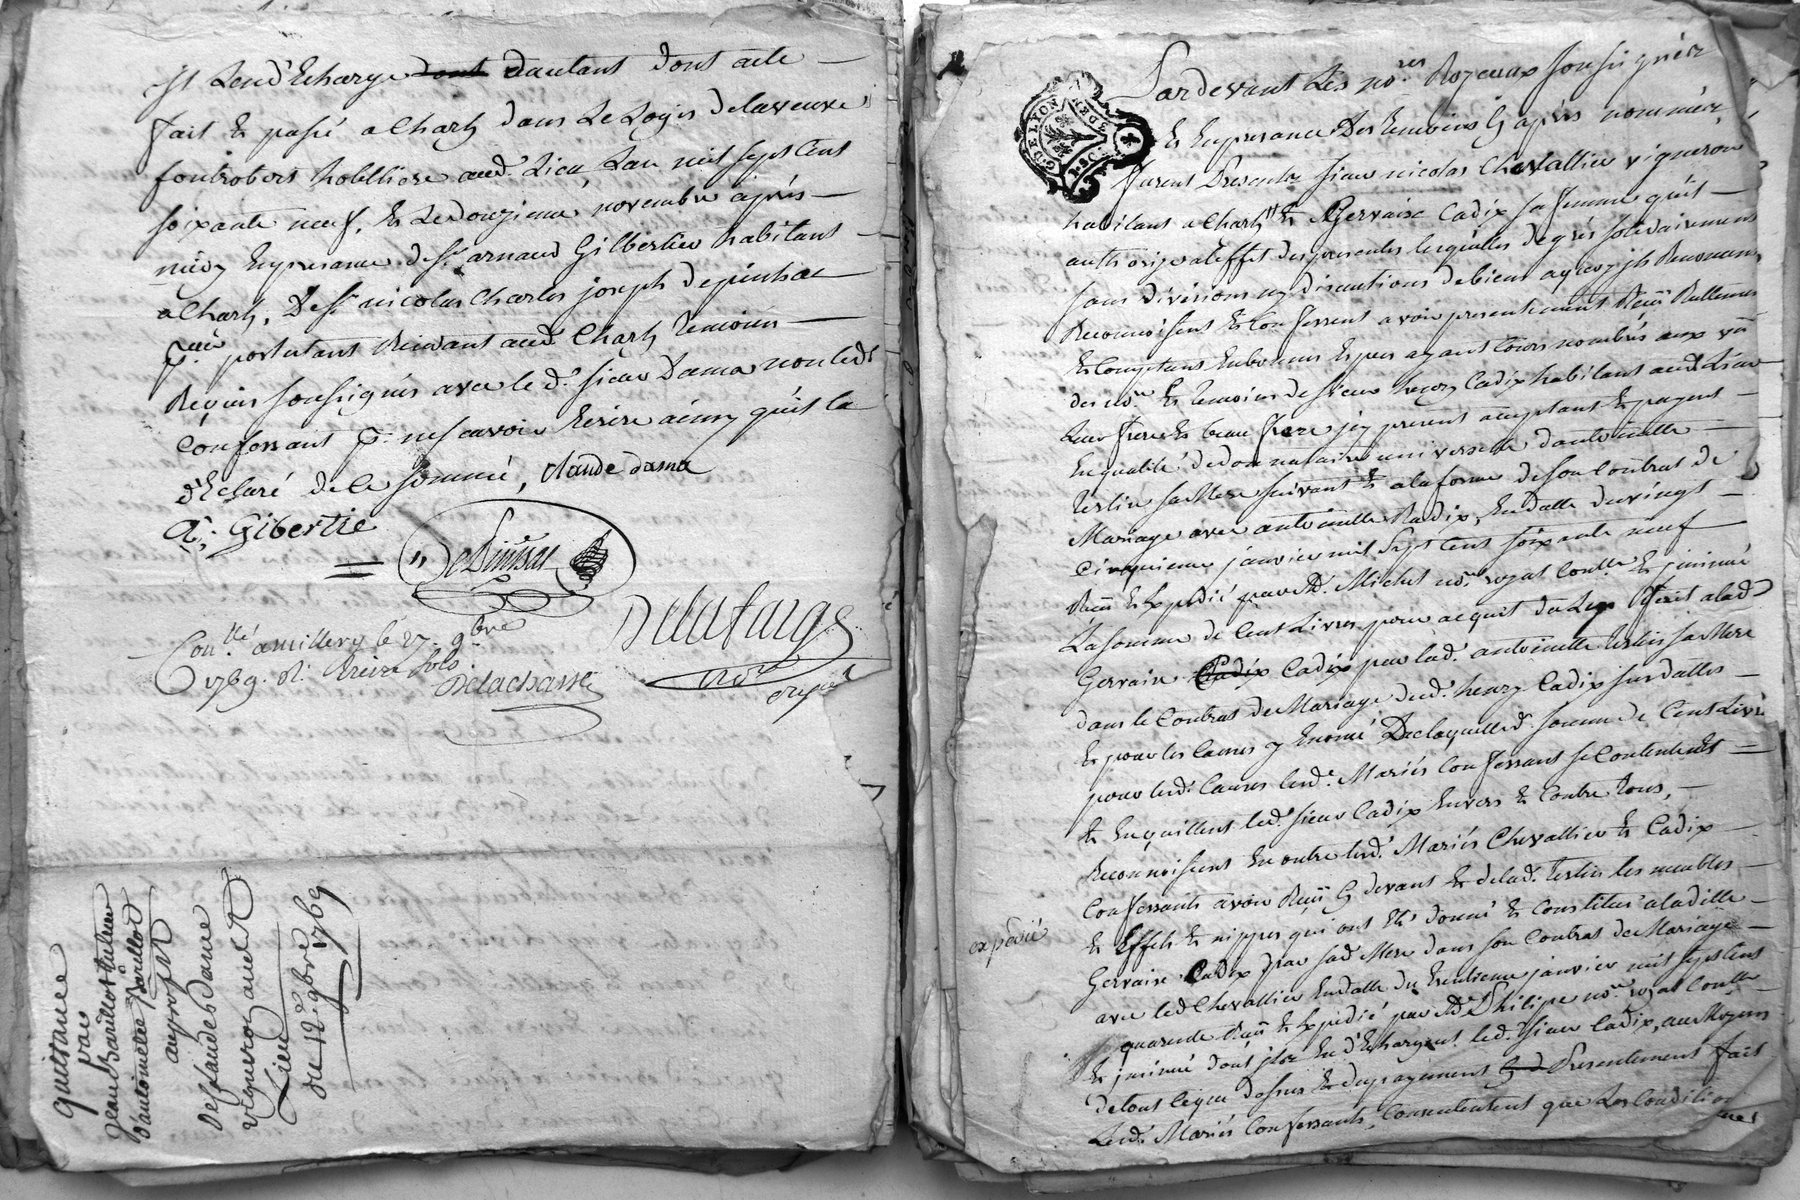 et Lend Echarge dont dautant dont acte
fait Et passé a Charly dans Le Logis delaveuve
hotelliere aud. Lieu Lan mil sept Cent
soixante neuf, Et Ledouzieme novembre après
midy En presance de Sr. arnaud Gilbertier habitant
a Charly, & Sr. nicolas Charles joseph depinhac
portulant Residant aud. Charly temoins
Requis soussignés avec le d. sieur Dama non led.
Confessant pr. ne scavoir Ecrire ainsy qu'il la
d'Eclaré de ce sommé, Claude dama
A. Gibertie
DeLafarge
nore. royal
Con.llé a millery le 27. 9bre
1769. R. treize sols
Delachasse
quittance
par
jean Barillot tuteur
d'antoinette Barillot
au profit
de Claude Dame
vigneron audit
Lieu
du 12e. 9bre 1769
Pardevant Les nores. Royaux soussignés
Et En presance Des temoins Cy après nommés,
G. DE LYON
furent Presents sieur nicolas Chevallier vigneron
habitant a Charly Et Gervaise Cadix sa femme qu'il
authorise a l'effet des presentes lesquelles de grés solidairement
sans divisions ny discutions de biens a quoy ils Renoncent
Reconnoissent Et Confessent avoir presentement Reçu Rellement
Et Comptant En bonnes Especes ayant Cours nombrés aux vu
des nore. Et temoins de sieur henry Cadix habitant aud. Lieu
Leur frere Et beau frere jcy present acceptant Et payent
En qualité de donnataire universelle d'antoinette
Terlin sa Mere suivant Et a la forme de son Contrat de
Mariage avec antoinette Radix, En datte du vingt
Cinquieme janvier mil sept Cent soixante neuf
Reçu Et Expedié par Me. Michel nore. royal Contllé. Et jnsinué
La somme de Cent Livres pour acquit du Legs fait a lad.
Gervaise Cadix Cadix par lad. antoinette Terlin sa Mere
dans le Contrat de Mariage dud. henry Cadix susdatté
Et pour les Causes y Enoncé De laquelle d. somme de Cent Livre
pour lesd. Causes lesd. Mariés Confessant se Contentent
Et En quittent led. sieur Cadix Envers Et Contre tous,
Reconnoissent En outre lesd. Mariés Chevallier Et Cadix
Confessants avoir Reçu Cy devant Et de lad. Terlin les meubles
Et Effets Et nippes qui ont Eté donné Et Constitué a laditte
expedié
Gervaise Cadix par sad. Mere dans son Contrat de Mariage
avec led. Chevallier En datte du trentieme janvier mil sept Cent
quarante Reçu Et Expedié par Me. Philipe nore. royal Contllé
Et jnsinué dont jls En d'Echargent led. sieur Cadix, au Moyens
de tout Ce que dessus Et du payement Presentement fait
Lesd. Mariés Confessants, Consentent que Les Conditions